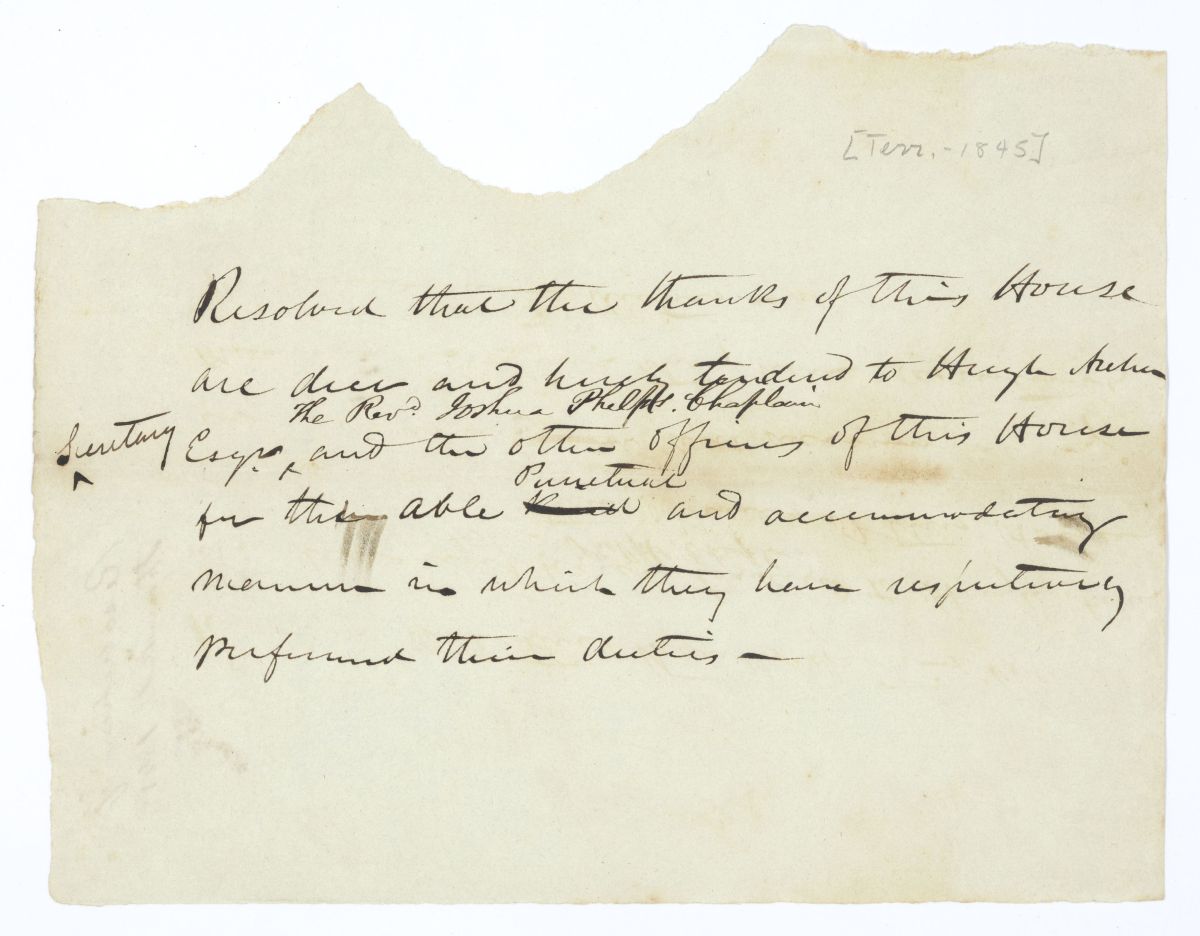 [Terr. - 1845]
Resolved that the thanks of this House
are due and hereby tendered to Hugh Archer
The Revd. Joshua Phelps. Chaplain
Secretary Esqr. and the other officers of this House
Punctual
for their able Kind and accommodating
manner in which they have respectively
performed their duties —